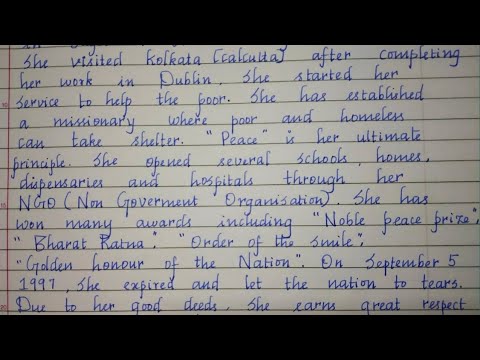 She visited Kolkata (Calcutta) after completing
her work in Dublin, She started her
service to help the poor. She has established
a missionary where poor and homeless
can take shelter. "Peace" is her ultimate
principle. She opened several schools, homes,
dispensaries and hospitals through her
NGO (Non Goverment Organisation). She has
won many awards including "Noble peace prize",
"Bharat Ratna", "Order of the smile",
"Golden honour of the Nation". On September 5
1997, She expired and let the nation to tears.
Due to her good deeds, She earns great respect